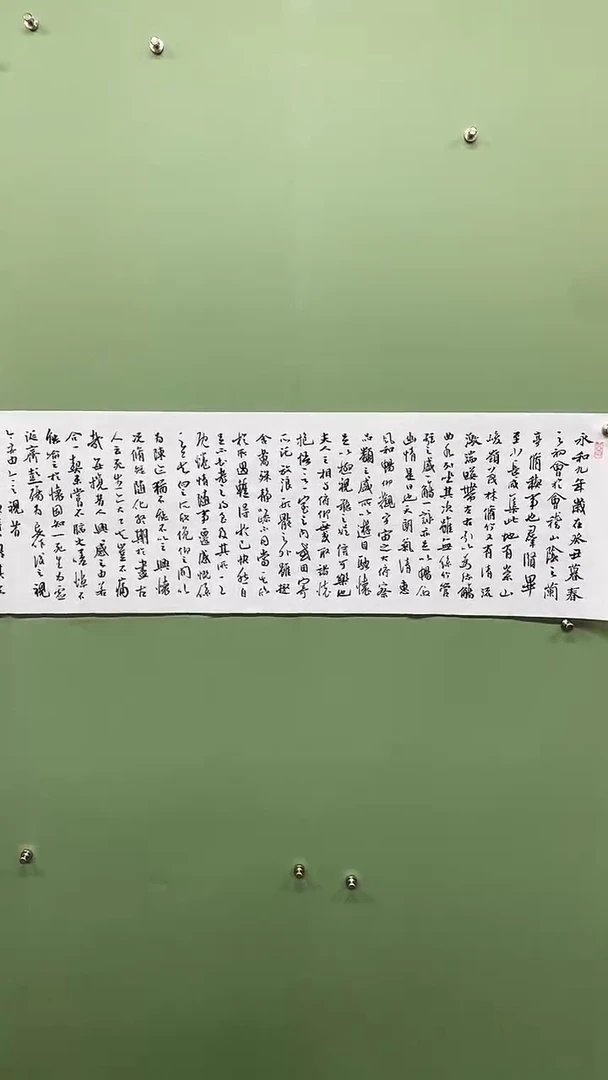 永和九年歲在癸丑暮春
之初會於會稽山陰之蘭
亭脩稧事也羣賢畢
至少長咸集此地有崇山
峻嶺茂林脩竹又有清流
激湍暎帶左右引以為流觴
曲水列坐其次雖無絲竹管
弦之盛一觴一詠亦足以暢敘
幽情是日也天朗氣清惠
風和暢仰觀宇宙之大俯察
品類之盛所以遊目騁懷
足以極視聽之娛信可樂也
夫人之相與俯仰一世或取諸懷
抱悟言一室之內或因寄
所託放浪形骸之外雖趣
舍萬殊靜躁不同當其欣
於所遇暫得於己快然自
足不知老之將至及其所之
既惓情隨事遷感慨係
之矣向之所欣俛仰之間以
為陳迹猶不能不以之興懷
況脩短隨化終期於盡古
人云死生亦大矣豈不痛
哉每攬昔人興感之由若
合一契未嘗不臨文嗟悼不
能喻之於懷固知一死生為虛
誕齊彭殤為妄作後之視
今亦由今之視昔